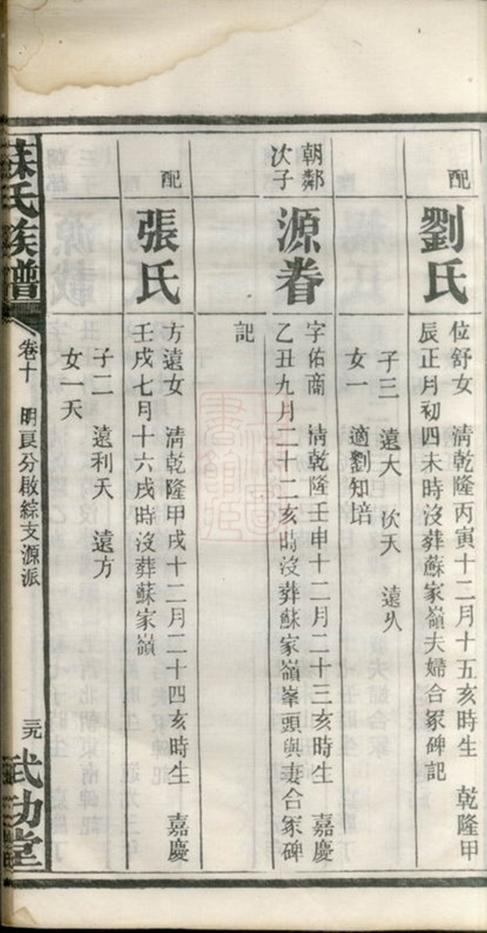 配
劉氏
位舒女　清乾隆丙寅十二月十五亥時生　乾隆甲
辰正月初四未時沒葬蘇家嶺夫婦合冢碑記
子三　遠大　次夭　遠久
女一　適劉知培
朝鄰
次子
源眷
字佑商　清乾隆壬申十二月二十三亥時生　嘉慶
乙丑九月二十二亥時沒葬蘇家嶺峯頭與妻合冢碑
記
配
張氏
方遠女　清乾隆甲戌十二月二十四亥時生　嘉慶
壬戌七月十六戌時沒葬蘇家嶺
子二　遠利夭　遠方
女一夭
蘇氏族譜
卷十　明良分啟綜支源派
三元
武功堂